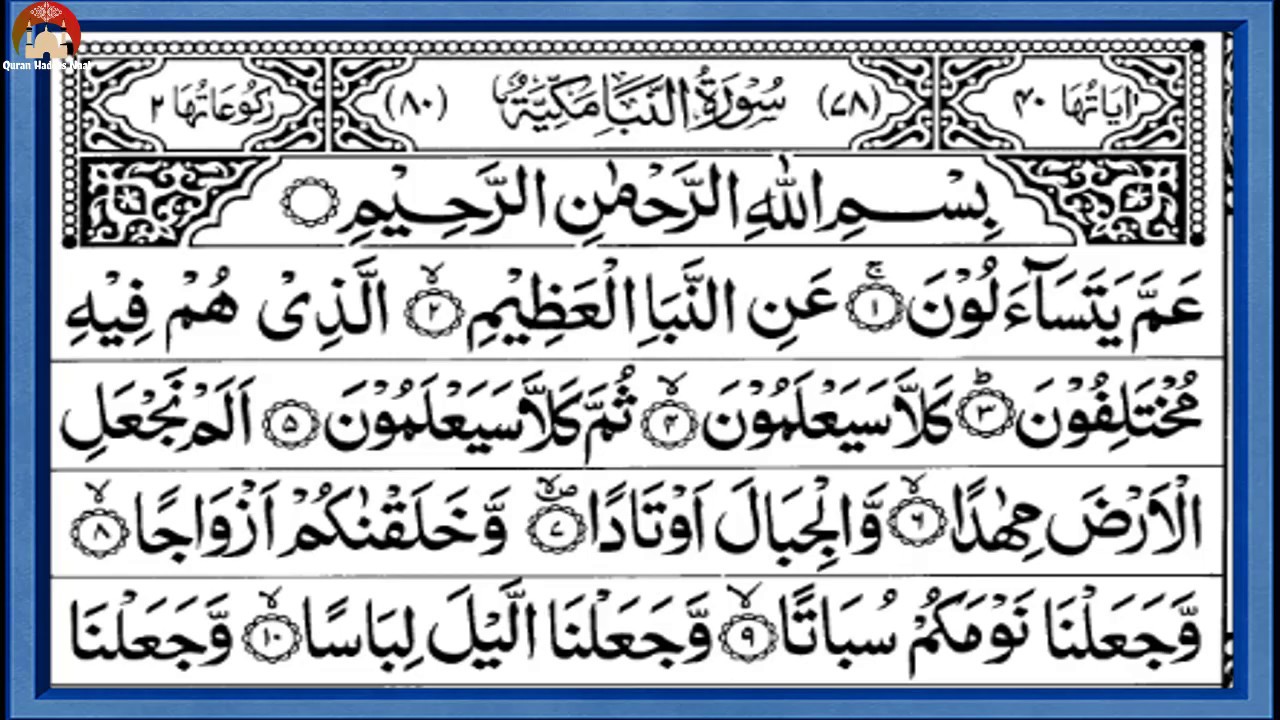 Quran Hadees Naat
اٰيَاتُهَا ۴۰ (۷۸) سُوْرَةُ النَّبَاِ مَكِّيَّةٌ (۸۰) رُكُوْعَاتُهَا ۲
بِسْمِ اللّٰهِ الرَّحْمٰنِ الرَّحِيْمِ
عَمَّ يَتَسَآءَلُوْنَ ۚ‏ ۱ عَنِ النَّبَاِ الْعَظِيْمِۙ‏ ۲ الَّذِىْ هُمْ فِيْهِ
مُخْتَلِفُوْنَؕ‏ ۳ كَلَّا سَيَعْلَمُوْنَۙ‏ ۴ ثُمَّ كَلَّا سَيَعْلَمُوْنَ ۵ اَلَمْ نَجْعَلِ
الْاَرْضَ مِهٰدًاۙ‏ ۶ وَّالْجِبَالَ اَوْتَادًا ۪ۙ‏ ۷ وَّخَلَقْنٰكُمْ اَزْوَاجًاۙ‏ ۸
وَّجَعَلْنَا نَوْمَكُمْ سُبَاتًاۙ‏ ۹ وَّجَعَلْنَا الَّيْلَ لِبَاسًاۙ‏ ۱۰ وَّجَعَلْنَا